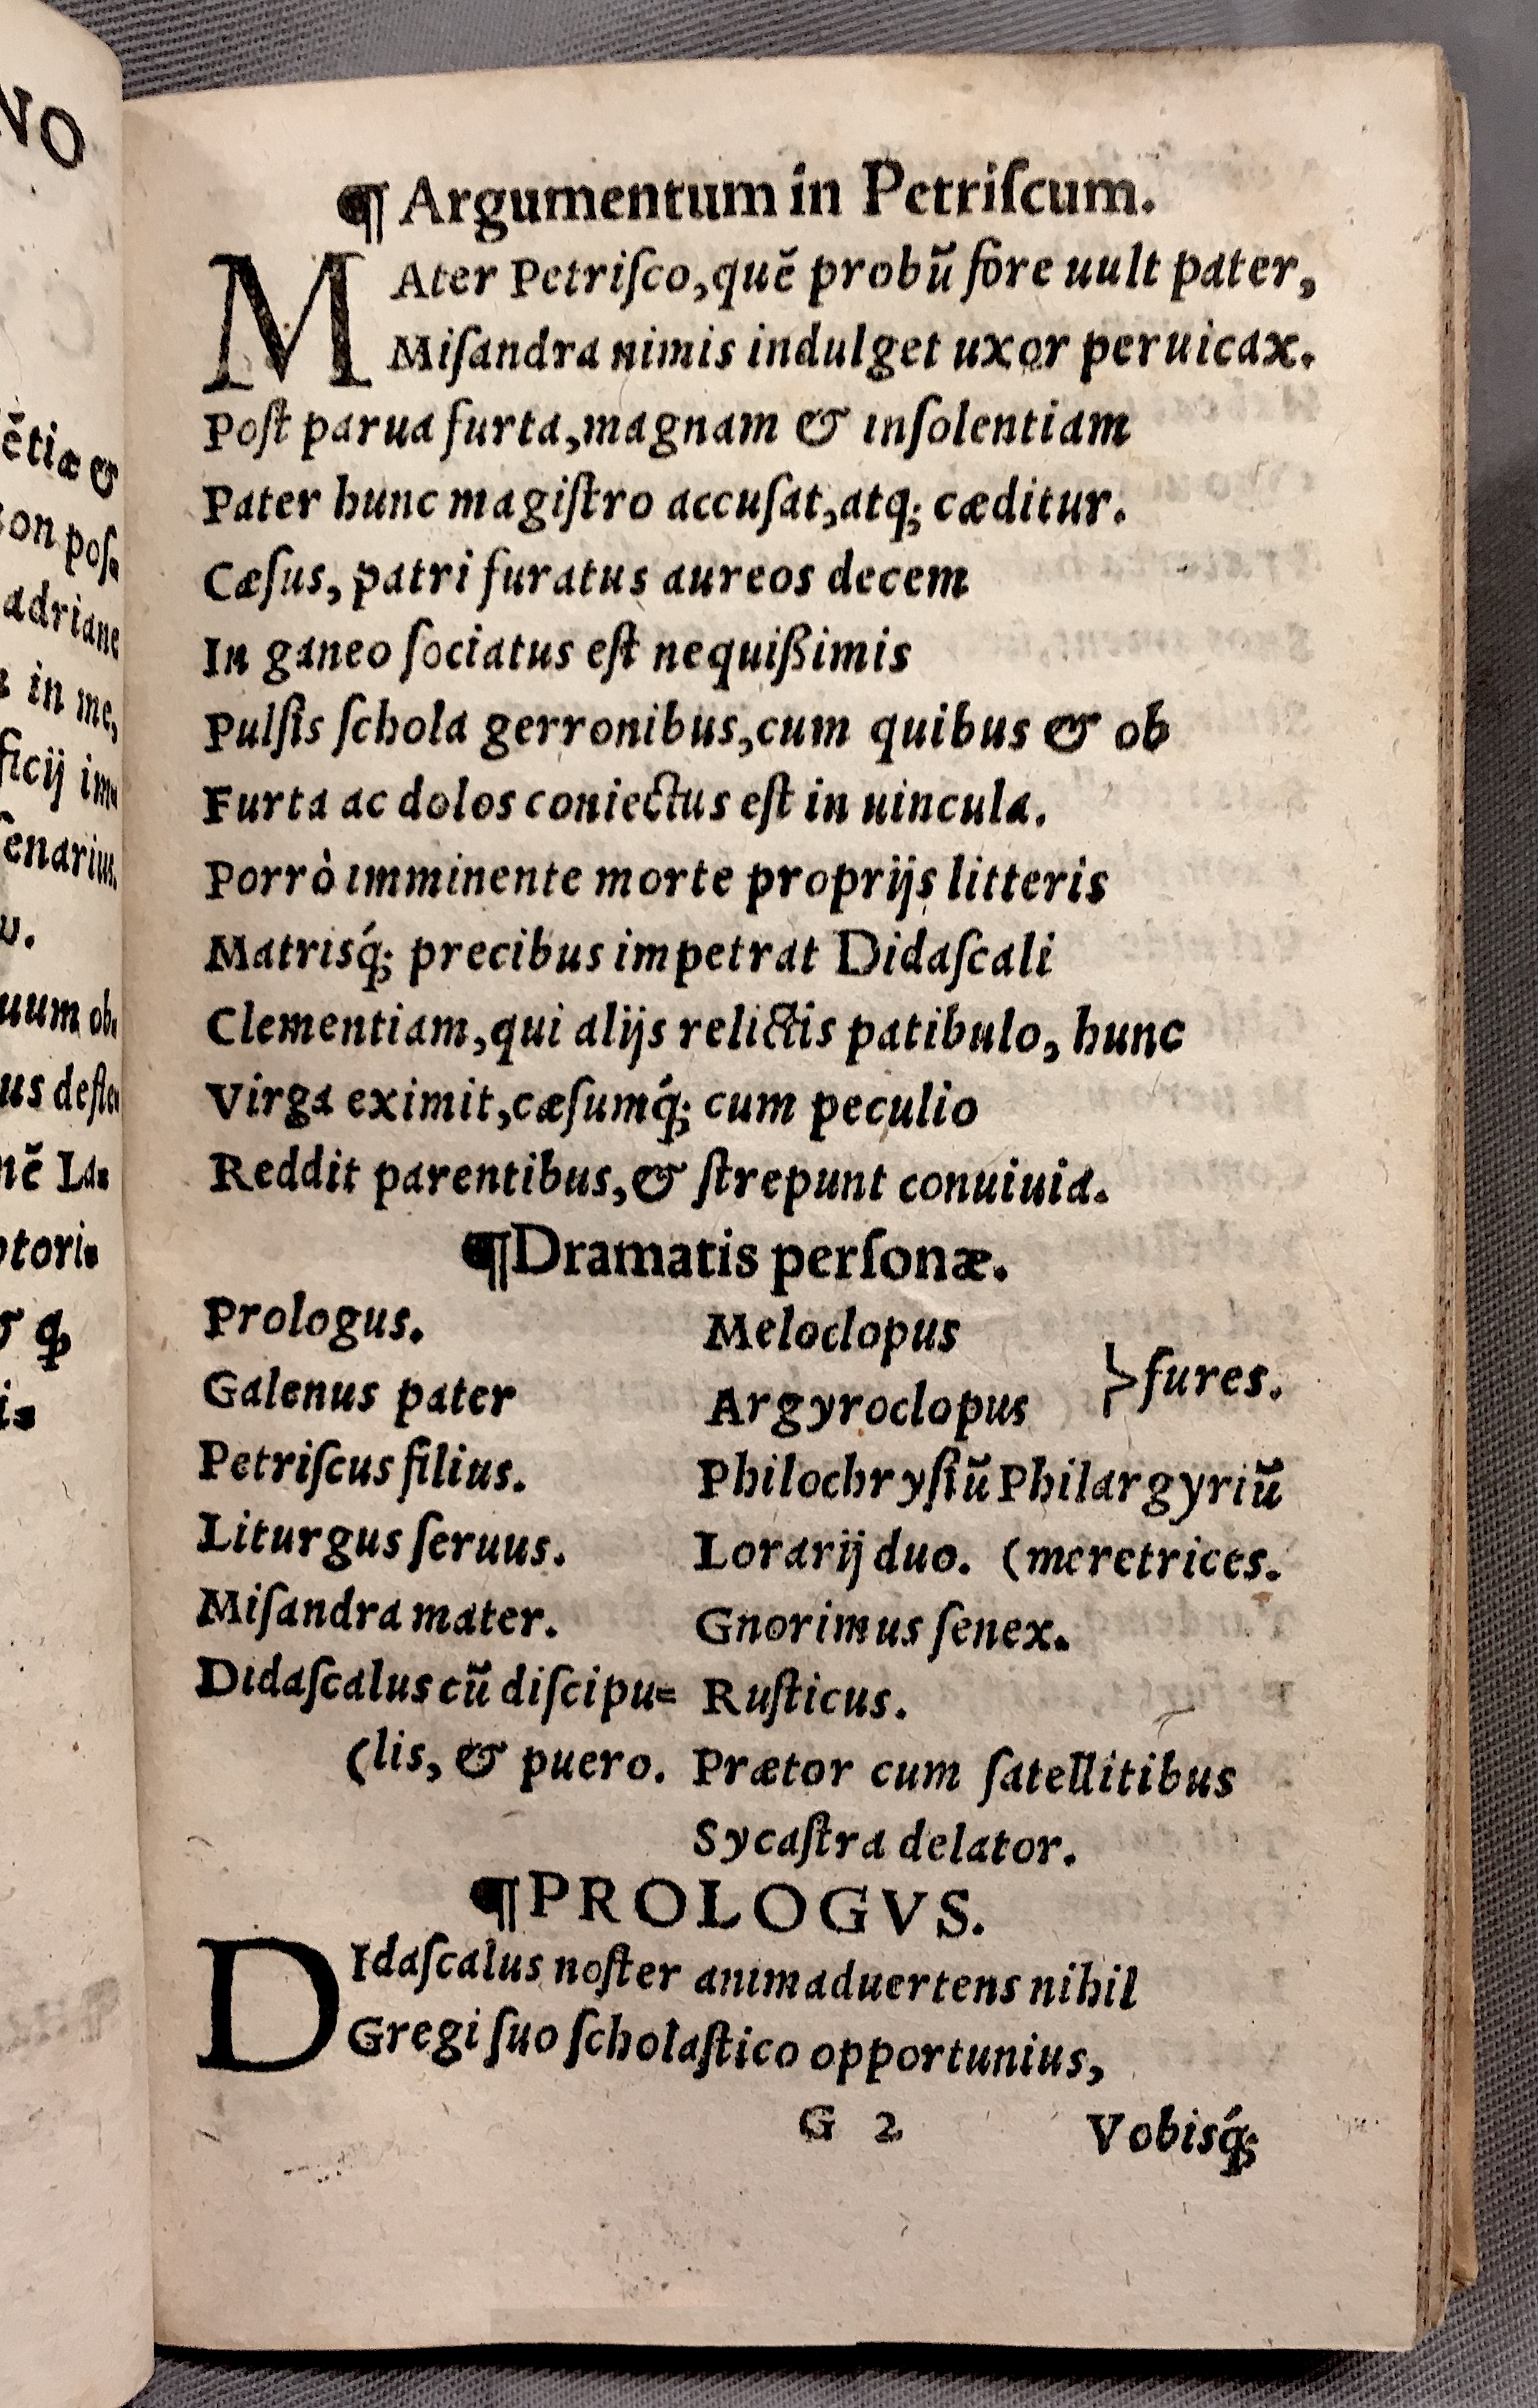 NO
ētiæ &
on pos=
adriane
in me,
ficij im=
enarius.
uum ob=
nē La=
ptori=
¶ Argumentum in Petriſcum.
MAter Petriſco, quē probū fore uult pater,
Miſandra nimis indulget uxor peruicax.
Poſt parua furta, magnam & inſolentiam
Pater hunc magiſtro accuſat, atq; cæditur.
Cæſus, patri furatus aureos decem
In ganeo ſociatus eſt nequißimis
Pulſis ſchola gerronibus, cum quibus & ob
Furta ac dolos coniectus eſt in uincula.
Porrò imminente morte proprijs litteris
Matrisq́; precibus impetrat Didaſcali
Clementiam, qui alijs relictis patibulo, hunc
Virga eximit, cæſumq́; cum peculio
Reddit parentibus, & ſtrepunt conuiuia.
¶Dramatis perſonæ.
Prologus.
Galenus pater
Petriſcus filius.
Liturgus ſeruus.
Miſandra mater.
Didaſcalus cū diſcipu=
(lis, & puero.
Meloclopus
Argyroclopus
}fures.
Philochryſiū Philargyriū
Lorarij duo. (meretrices.
Gnorimus ſenex.
Ruſticus.
Prætor cum ſatellitibus
Sycaſtra delator.
¶PROLOGVS.
DIdaſcalus noſter animaduertens nihil
Gregi ſuo ſcholaſtico opportunius,
G 2
Vobisq́;